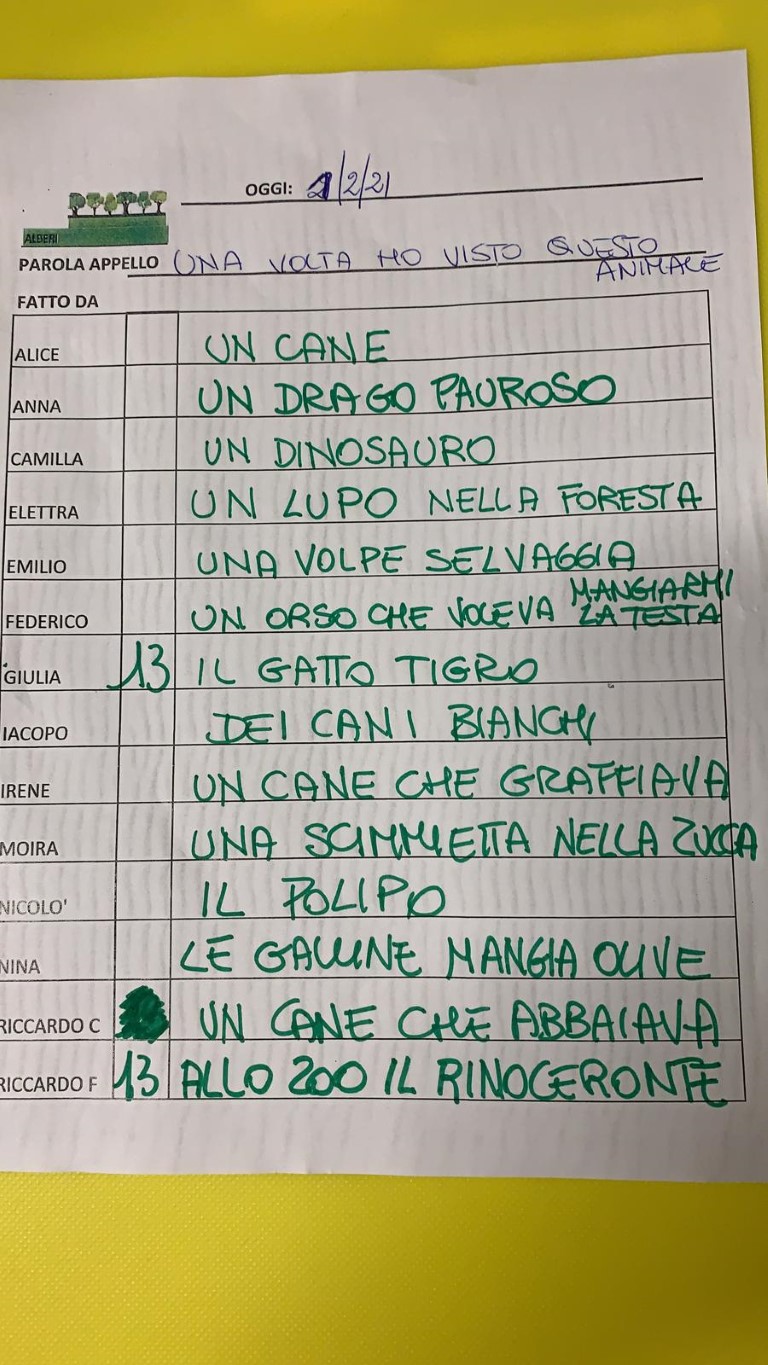 OGGI: 1/2/21
ALBERI
PAROLA APPELLO UNA VOLTA HO VISTO QUESTO
ANIMALE
FATTO DA
ALICE UN CANE
ANNA UN DRAGO PAUROSO
CAMILLA UN DINOSAURO
ELETTRA UN LUPO NELLA FORESTA
EMILIO UNA VOLPE SELVAGGIA
FEDERICO UN ORSO CHE VOLEVA MANGIARMI
LA TESTA
GIULIA 13 IL GATTO TIGRO
IACOPO DEI CANI BIANCHI
IRENE UN CANE CHE GRAFFIAVA
MOIRA UNA SCIMMIETTA NELLA ZUCCA
NICOLO' IL POLIPO
NINA LE GALLINE MANGIA OLIVE
RICCARDO C UN CANE CHE ABBAIAVA
RICCARDO F 13 ALLO ZOO IL RINOCERONTE